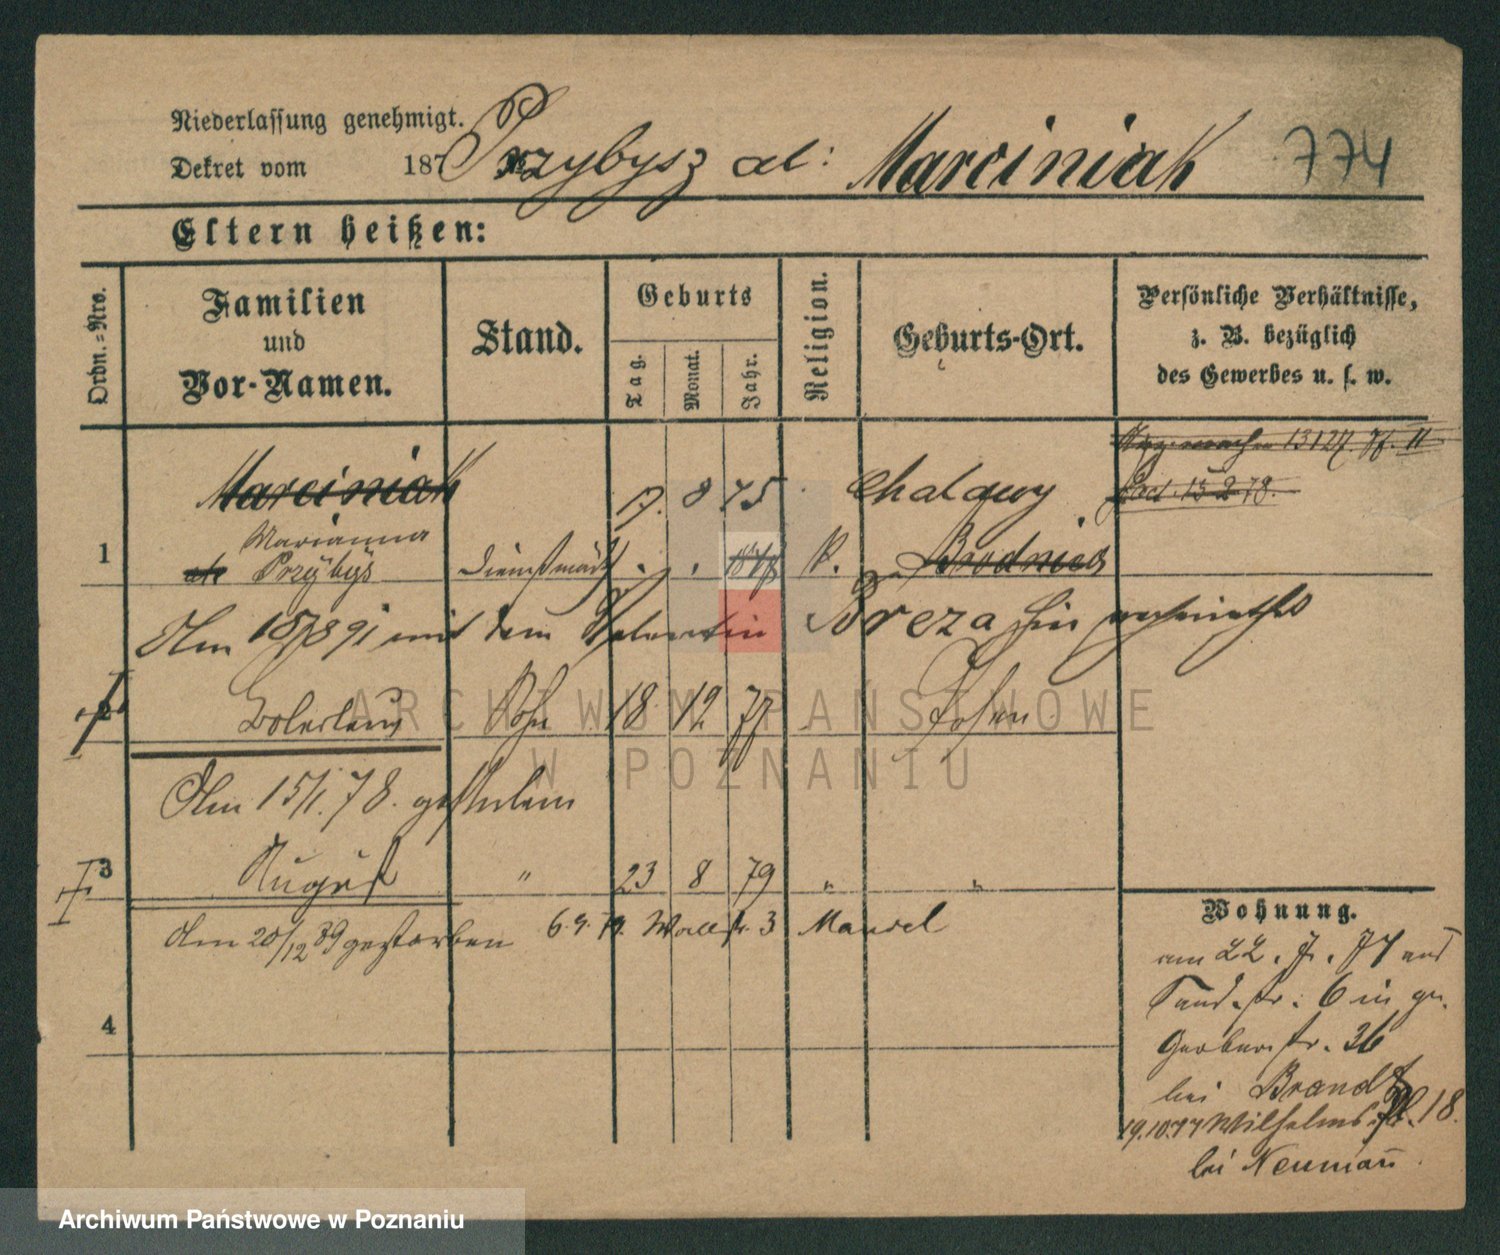 Niederlassung genehmigt.
Dekret vom 187
Przybysz al: Marciniak 774
Eltern heißen:
Ordn.-Nro.
Familien
und
Vor-Namen.
Stand.
Geburts
Tag.
Monat.
Jahr.
Religion.
Geburts-Ort.
Persönliche Verhältnisse,
z. B. bezüglich
des Gewerbes u. s. w.
Marciniak 8 75 Chalawy
15 2 78.
1 Marianna
Przybys Dienstmädch K. Brodnica
Am 1878 91 mit dem Valentin Breza hier
2 Boleslaus Sohn 18 12 77 Posen
Am 15/1. 78. gestorben
3 August " 23 8 79 " "
Am 20/12 89 gestorben 6.9.79. Wallstr. 3 Mandel
4
Wohnung.
am 22. 7. 77 aus
Sandstr: 6 in
Gerberstr. 36
bei Brandt
19.10.77 Wilhelms Pl. 18.
bei Neumann
ARCHIWUM PAŃSTWOWE
W POZNANIU
Archiwum Państwowe w Poznaniu